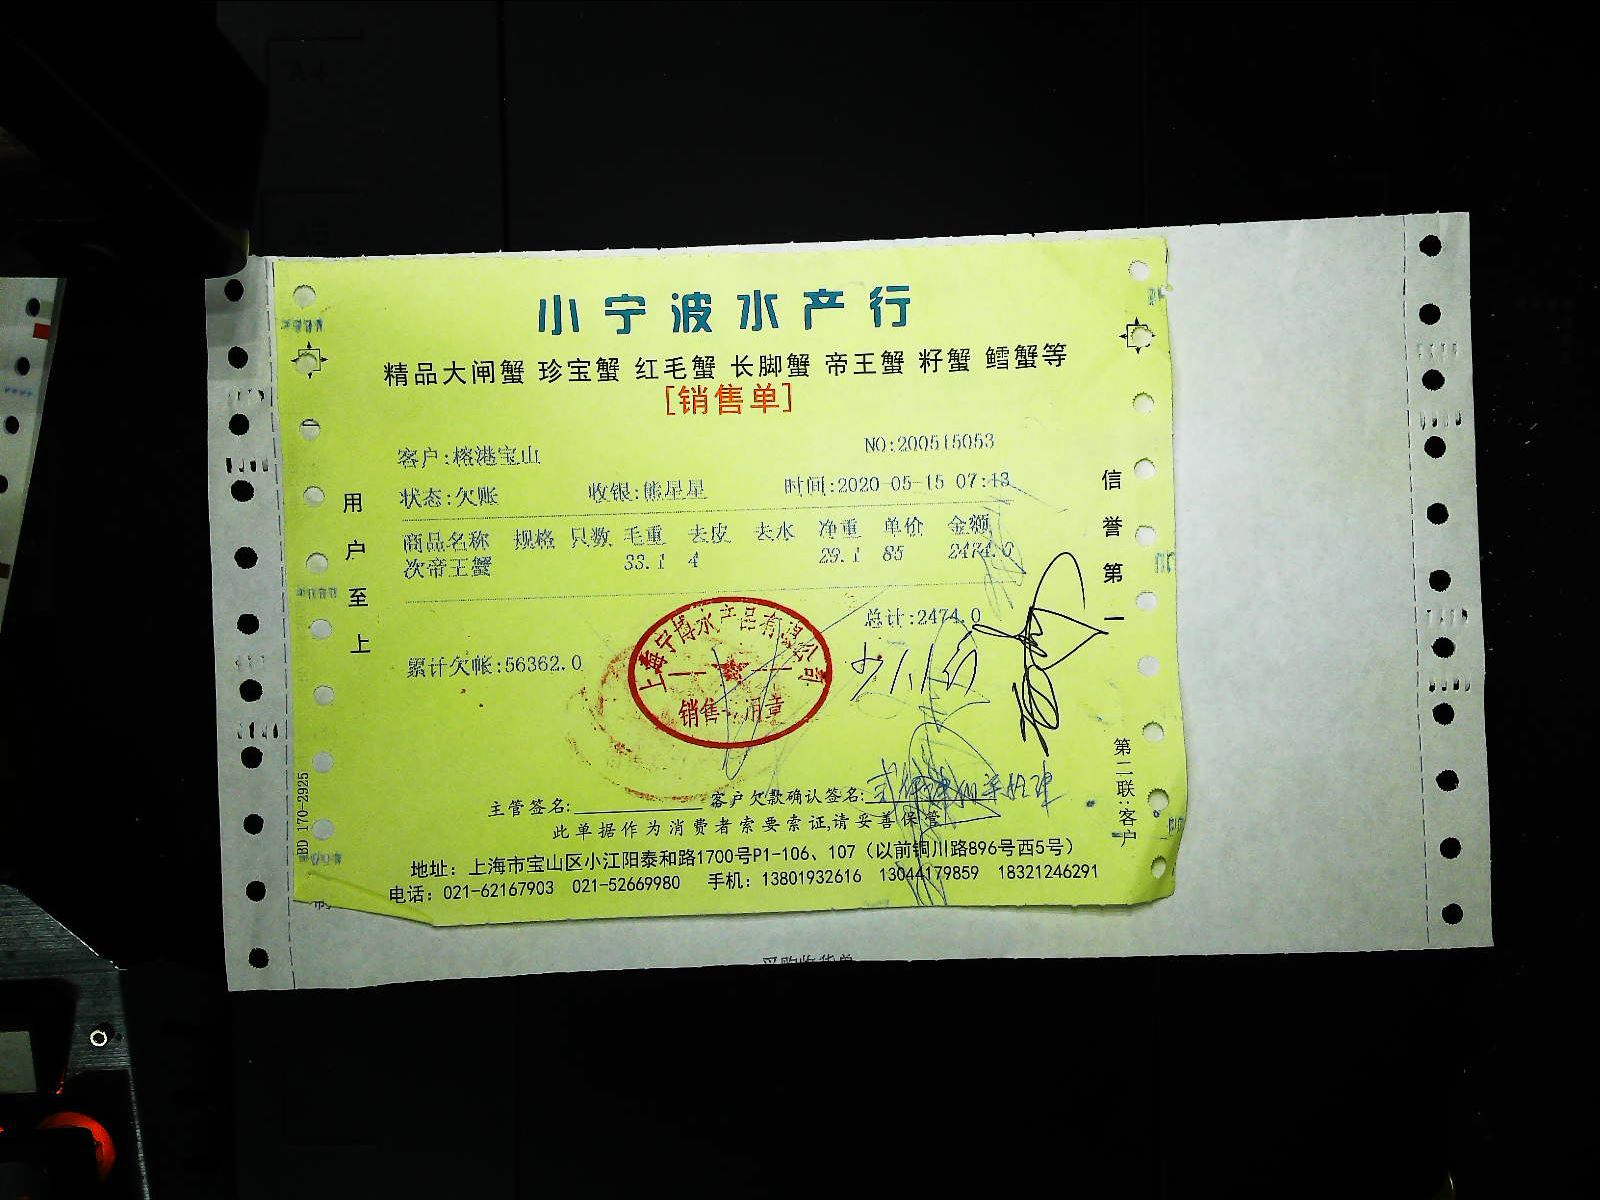 小宁波水产行
精品大闸蟹 珍宝蟹 红毛蟹 长脚蟹 帝王蟹 籽蟹 鳕蟹等
[销售单]
客户:榕港宝山 NO:200515053
状态:欠账 收银:熊星星 时间:2020-05-15 07:43
商品名称 规格 只数 毛重 去皮 去水 净重 单价 金额
次帝王蟹 33.1 4 29.1 85 2474.0
总计:2474.0
累计欠帐:56362.0
上海宁博水产品有限公司
销售专用章
主管签名: 客户欠款确认签名:
此单据作为消费者索要索证,请妥善保管
地址: 上海市宝山区小江阳泰和路1700号P1-106、107(以前铜川路896号西5号)
电话: 021-62167903 021-52669980 手机: 13801932616 13044179859 18321246291
用户至上
信誉第一
第二联:客户
BD 170-2925
采购收货单